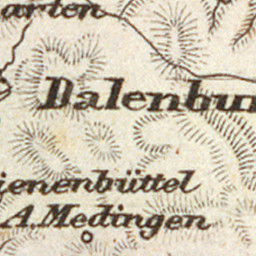 arten
Dalenbu
ienenbüttel
A. Medingen